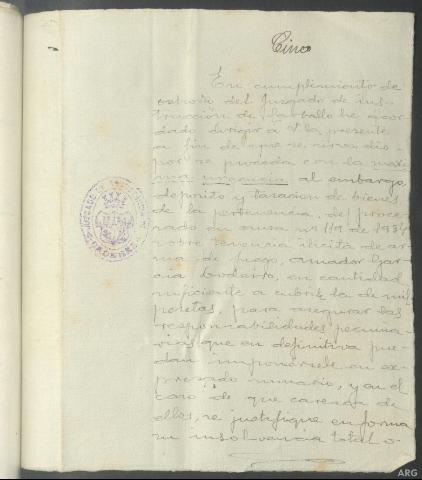 Cinco
En cumplimiento de
exhorto del Juzgado de ins-
trucción de Carballo he acor-
dado dirigir a V. la presente
a fin de que se sirva dis-
poner se proceda con la maxi-
ma urgencia al embargo,
depósito y tasacion de bienes
de la pertenencia del proce-
sado en causa nº 119 de 1934
sobre tenencia ilícita de ar-
ma de fuego, Amador Gar-
cia Codesto, en cantidad
suficiente a cubrir la de mil
pesetas, para asegurar las
responsabilidades pecunia-
rias que en definitiva pue-
dan imponérsele en ex-
presado sumario, y en el
caso de que carezca de
ellos, se justifique en forma
su insolvencia total o
JUZGADO DE
ARG